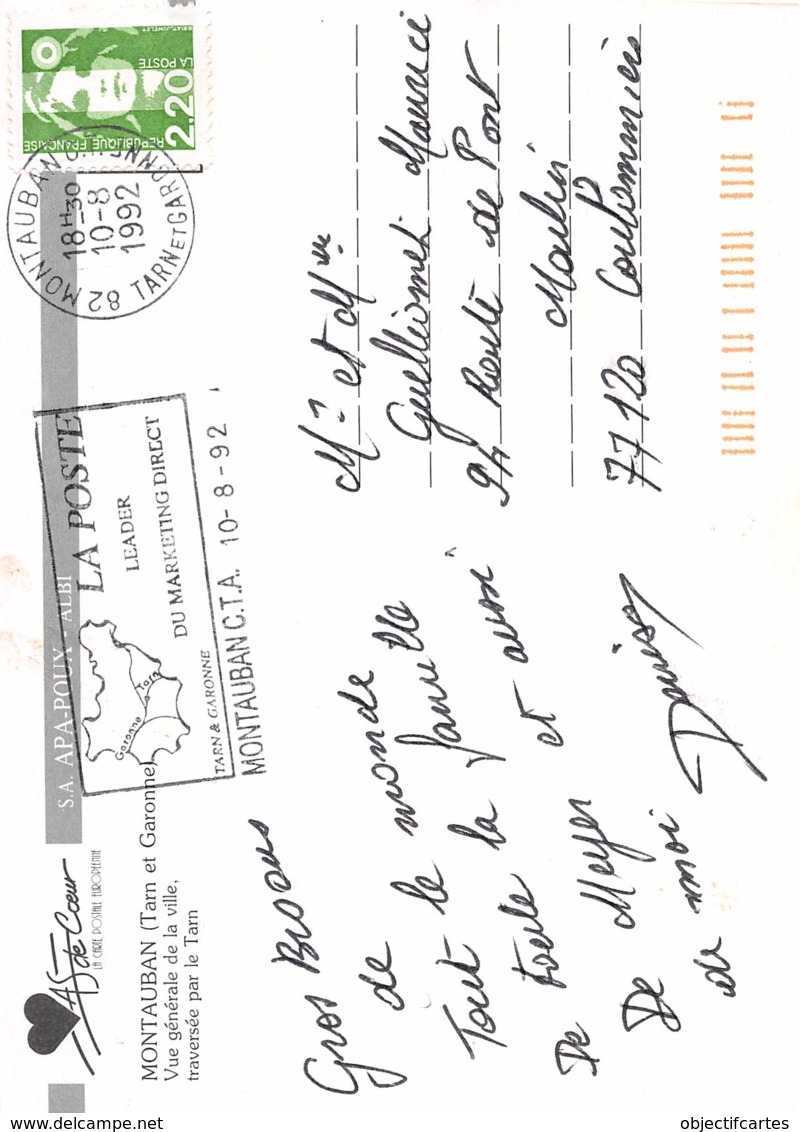 AS de Cœur
LA CARTE POSTALE EUROPÉENNE
S.A. APA-POUX - ALBI
MONTAUBAN (Tarn et Garonne)
Vue générale de la ville,
traversée par le Tarn
Garonne
Tarn
LA POSTE
LEADER
DU MARKETING DIRECT
TARN & GARONNE
MONTAUBAN C.T.A. 10-8-92
82 MONTAUBAN
18H30
10-8
1992
TARN ET GARONNE
LA POSTE
2,20
REPUBLIQUE FRANÇAISE
Gros Bisous
de tout le monde
Tout la famille
De toute et aussi
De Meyer
de moi Denise
Mr et Mme
Guellionet Maurice
94 Route de Pont
Moulin
77120 Coulommiers
objectifcartes